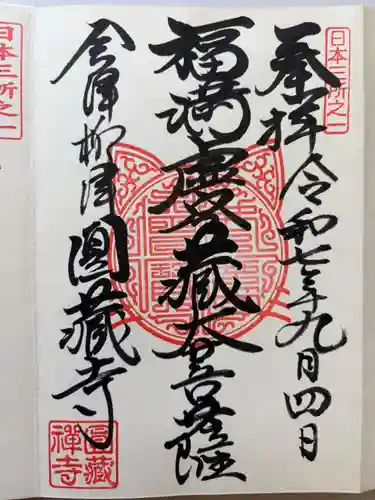 日本三所之一
奉拝 令和七年九月四日
福満虚空蔵大菩薩
会津柳津 圓藏寺
圓藏禅寺
日本三所之一